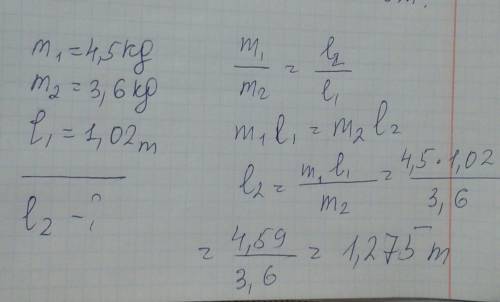 m₁ = 4,5 kg
m₂ = 3,6 kg
l₁ = 1,02 m
l₂ - ?
m₁/m₂ = l₂/l₁
m₁ l₁ = m₂ l₂
l₂ = m₁ l₁/m₂ = 4,5 · 1,02/3,6
= 4,59/3,6 = 1,275 m